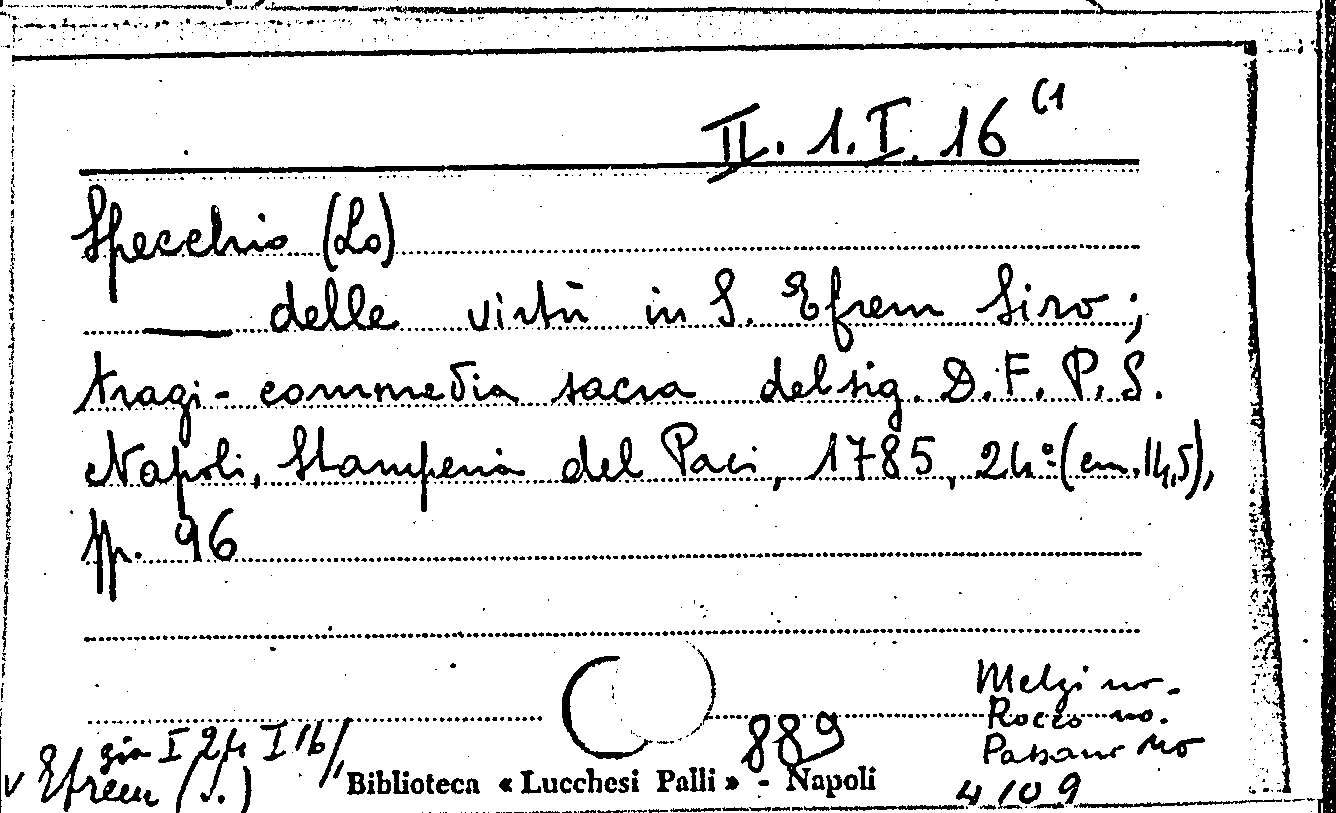 II. 1. I. 16 (1
Specchio (Lo)
— delle virtù in S. Efrem Siro;
tragi-commedia sacra del sig. D. F. P. S.
Napoli, Stamperia del Paci, 1785, 24º (cm. 14,5),
pp. 96
Melzi no.
Rocco no.
Passano no
già I 24 I 16/1
889
v Efrem (S.)
Biblioteca « Lucchesi Palli » - Napoli
4109